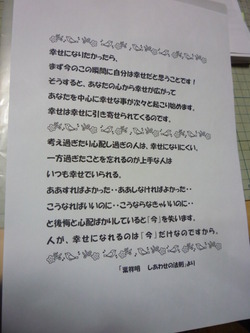 幸せになりたかったら、
まず今のこの瞬間に自分は幸せだと思うことです！
そうすると、あなたの心から幸せが広がって
あなたを中心に幸せな事が次々と起こり始めます。
幸せは幸せに引き寄せられてくるのです。
考え過ぎたり心配し過ぎの人は、幸せになりにくい、
一方過ぎたことを忘れるのが上手な人は
いつも幸せでいられる。
ああすればよかった・・ああしなければよかった・・
こうなればいいのに・・こうならなきゃいいのに・・
と後悔と心配ばかりしていると「今」を失います。
人が、幸せになれるのは「今」だけなのですから。
「葉祥明 しあわせの法則」より